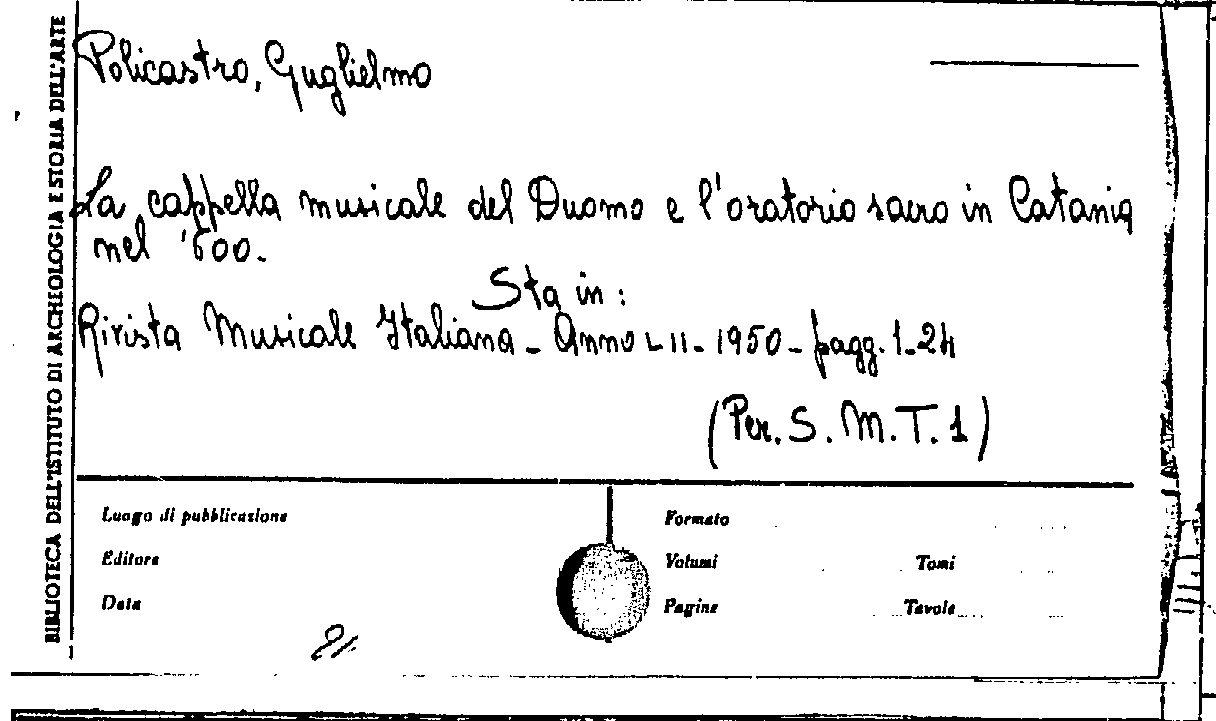 BIBLIOTECA DELL'ISTITUTO DI ARCHEOLOGIA E STORIA DELL'ARTE
Policastro, Guglielmo
La cappella musicale del Duomo e l'oratorio sacro in Catania
nel '600.
Sta in:
Rivista Musicale Italiana - Anno LII - 1950 - pagg. 1-24
(Per. S. M. T. 1)
Luogo di pubblicazione
Formato
Editore
Volumi Tomi
Data
Pagine Tavole